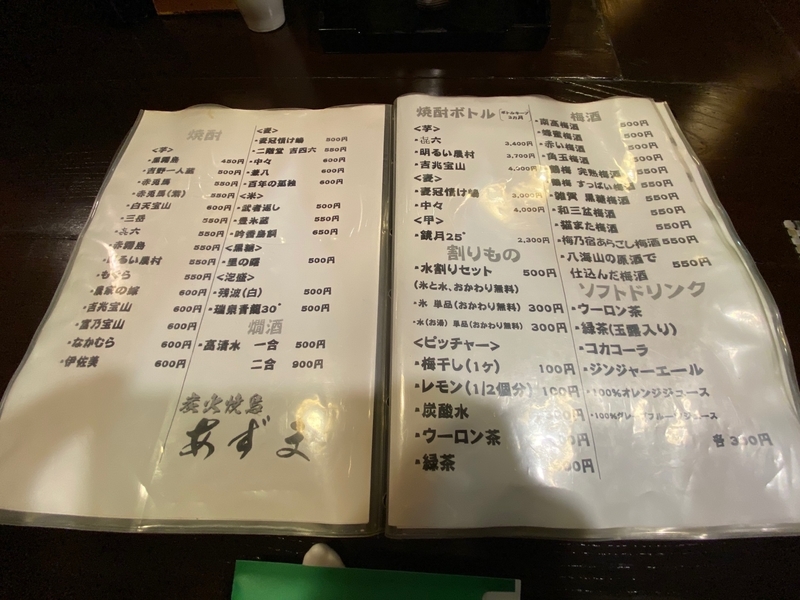 焼酎
<芋>
・黒霧島 450円
・吉野一人蔵 500円
・赤兎馬 550円
・赤兎馬(紫) 550円
・白天宝山 600円
・三岳 550円
・㐂六 550円
・赤霧島 550円
・明るい農村 550円
・もぐら 550円
・農家の嫁 600円
・吉兆宝山 600円
・富乃宝山 600円
・なかむら 600円
・伊佐美 600円
<麦>
・麦冠情け嶋 500円
・二階堂 吉四六 550円
・中々 600円
・兼八 600円
・百年の孤独 600円
<米>
・武者返し 500円
・豊永蔵 550円
・吟香鳥飼 650円
<黒糖>
・里の曙 500円
<泡盛>
・残波(白) 500円
・瑞泉青龍30° 500円
燗酒
・高清水 一合 500円
二合 900円
炭火焼鳥
あずま
焼酎ボトル
ボトルキープ
3ヵ月
<芋>
・㐂六 3,400円
・明るい農村 3,700円
・吉兆宝山
<麦>
・麦冠情け嶋
・中々 4,000円
<甲>
・鏡月25° 2,300円
割りもの
・水割りセット 500円
(氷と水、おかわり無料)
・氷 単品(おかわり無料) 300円
・水(お湯) 単品(おかわり無料) 300円
<ピッチャー>
・梅干し(1ヶ) 100円
・レモン(1/2個分) 100円
・炭酸水
・ウーロン茶
・緑茶
梅酒
500円
・蜂蜜梅酒 500円
・赤い梅酒 500円
・角玉梅酒 550円
完熟梅酒 550円
すっぱい梅酒 550円
・雑賀 黒糖梅酒 550円
・和三盆梅酒 550円
・猫また梅酒 550円
・梅乃宿あらごし梅酒 550円
・八海山の原酒で
仕込んだ梅酒 550円
ソフトドリンク
・ウーロン茶
・緑茶(玉露入り)
・コカコーラ
・ジンジャーエール
・100%オレンジジュース
・100%グレープフルーツジュース
各 350円